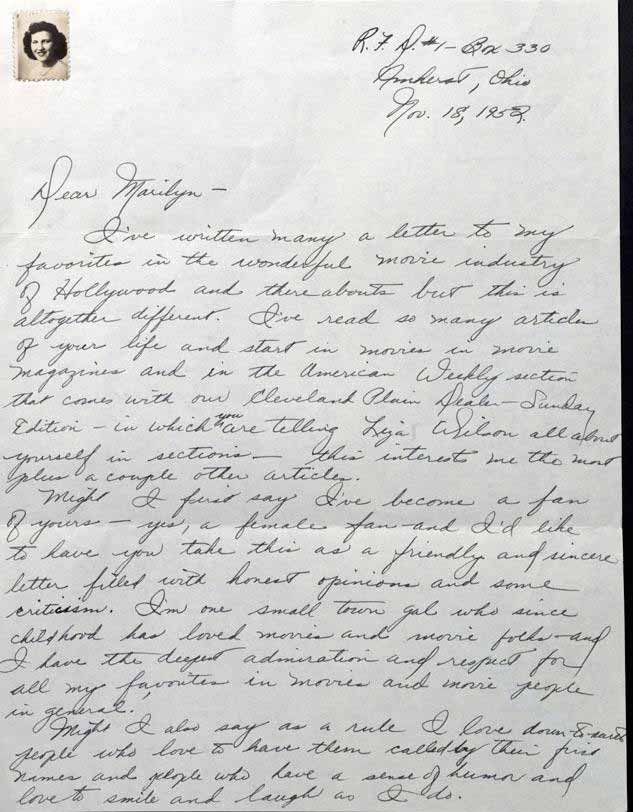 R.F.D. #1 - Box 330
Amherst, Ohio
Nov. 18, 1952.
Dear Marilyn -
I've written many a letter to my
favorites in the wonderful movie industry
of Hollywood and thereabouts but this is
altogether different. I've read so many articles
of your life and start in movies in movie
magazines and in the American Weekly section
that comes with our Cleveland Plain Dealer - Sunday
Edition - in which you are telling Liza Wilson all about
yourself in sections - this interests me the most
plus a couple other articles.
Might I first say I've become a fan
of yours - yes, a female fan - and I'd like
to have you take this as a friendly and sincere
letter filled with honest opinions and some
criticism. I'm one small town gal who since
childhood has loved movies and movie folks - and
I have the deepest admiration and respect for
all my favorites in movies and movie people
in general.
Might I also say as a rule I love down-to-earth
people who love to have them called by their first
names and people who have a sense of humor and
love to smile and laugh as I do.